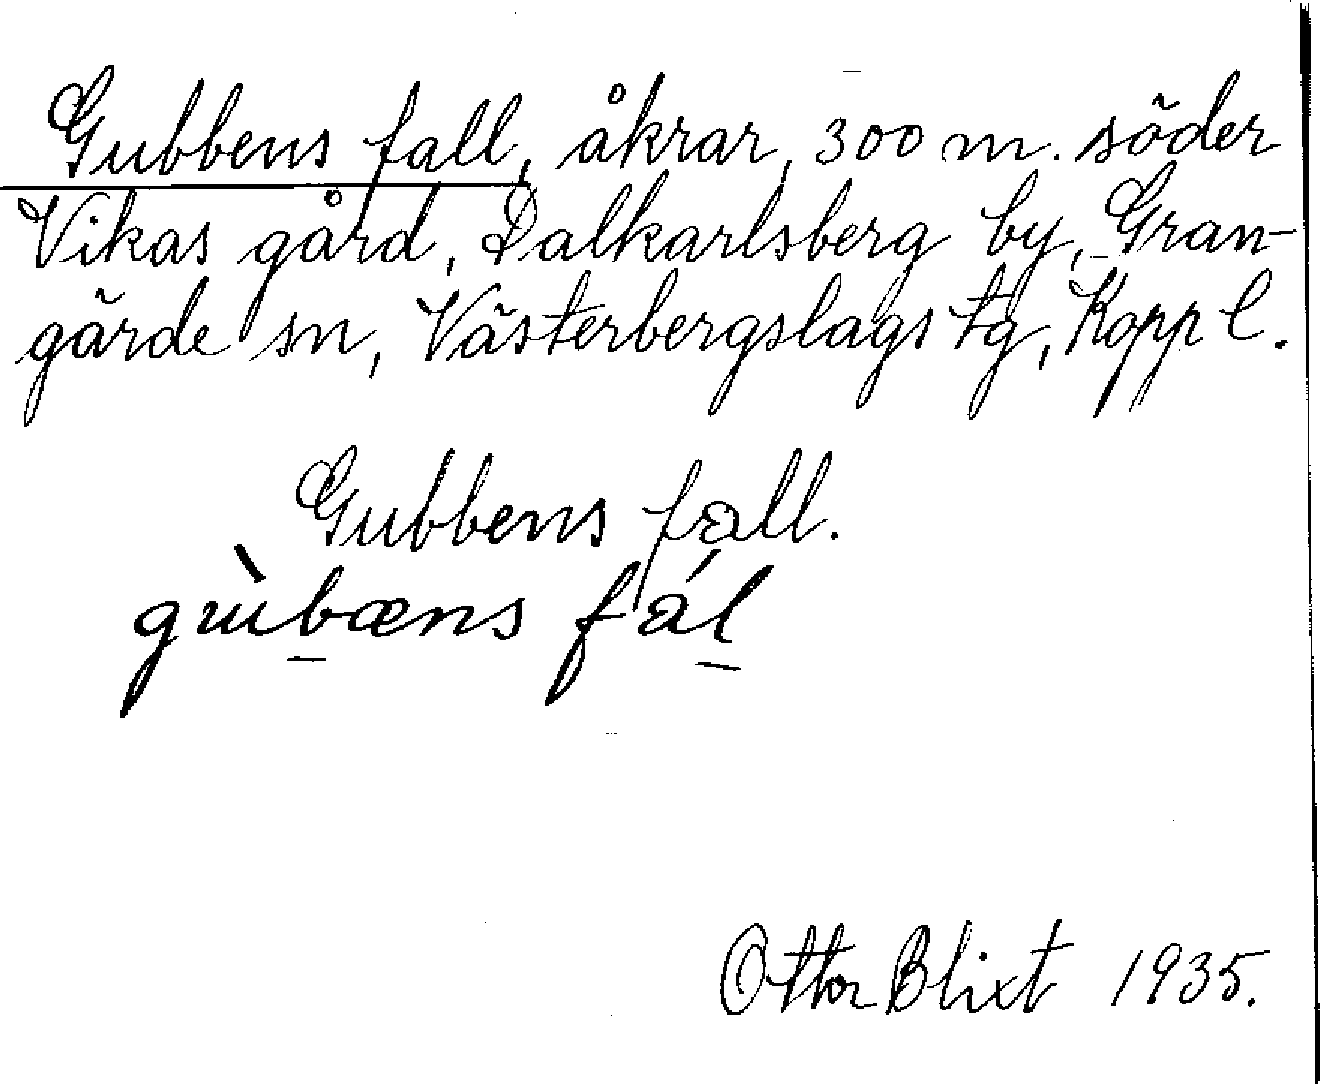 Gubbens fall, åkrar, 300 m. söder
Vikas gård, Dalkarlsberg by, Gran-
gärde sn, Västerbergslags tg, Kopp l.
Gubbens fall.
gɯ̀bæns fál
Otto Blixt 1935.